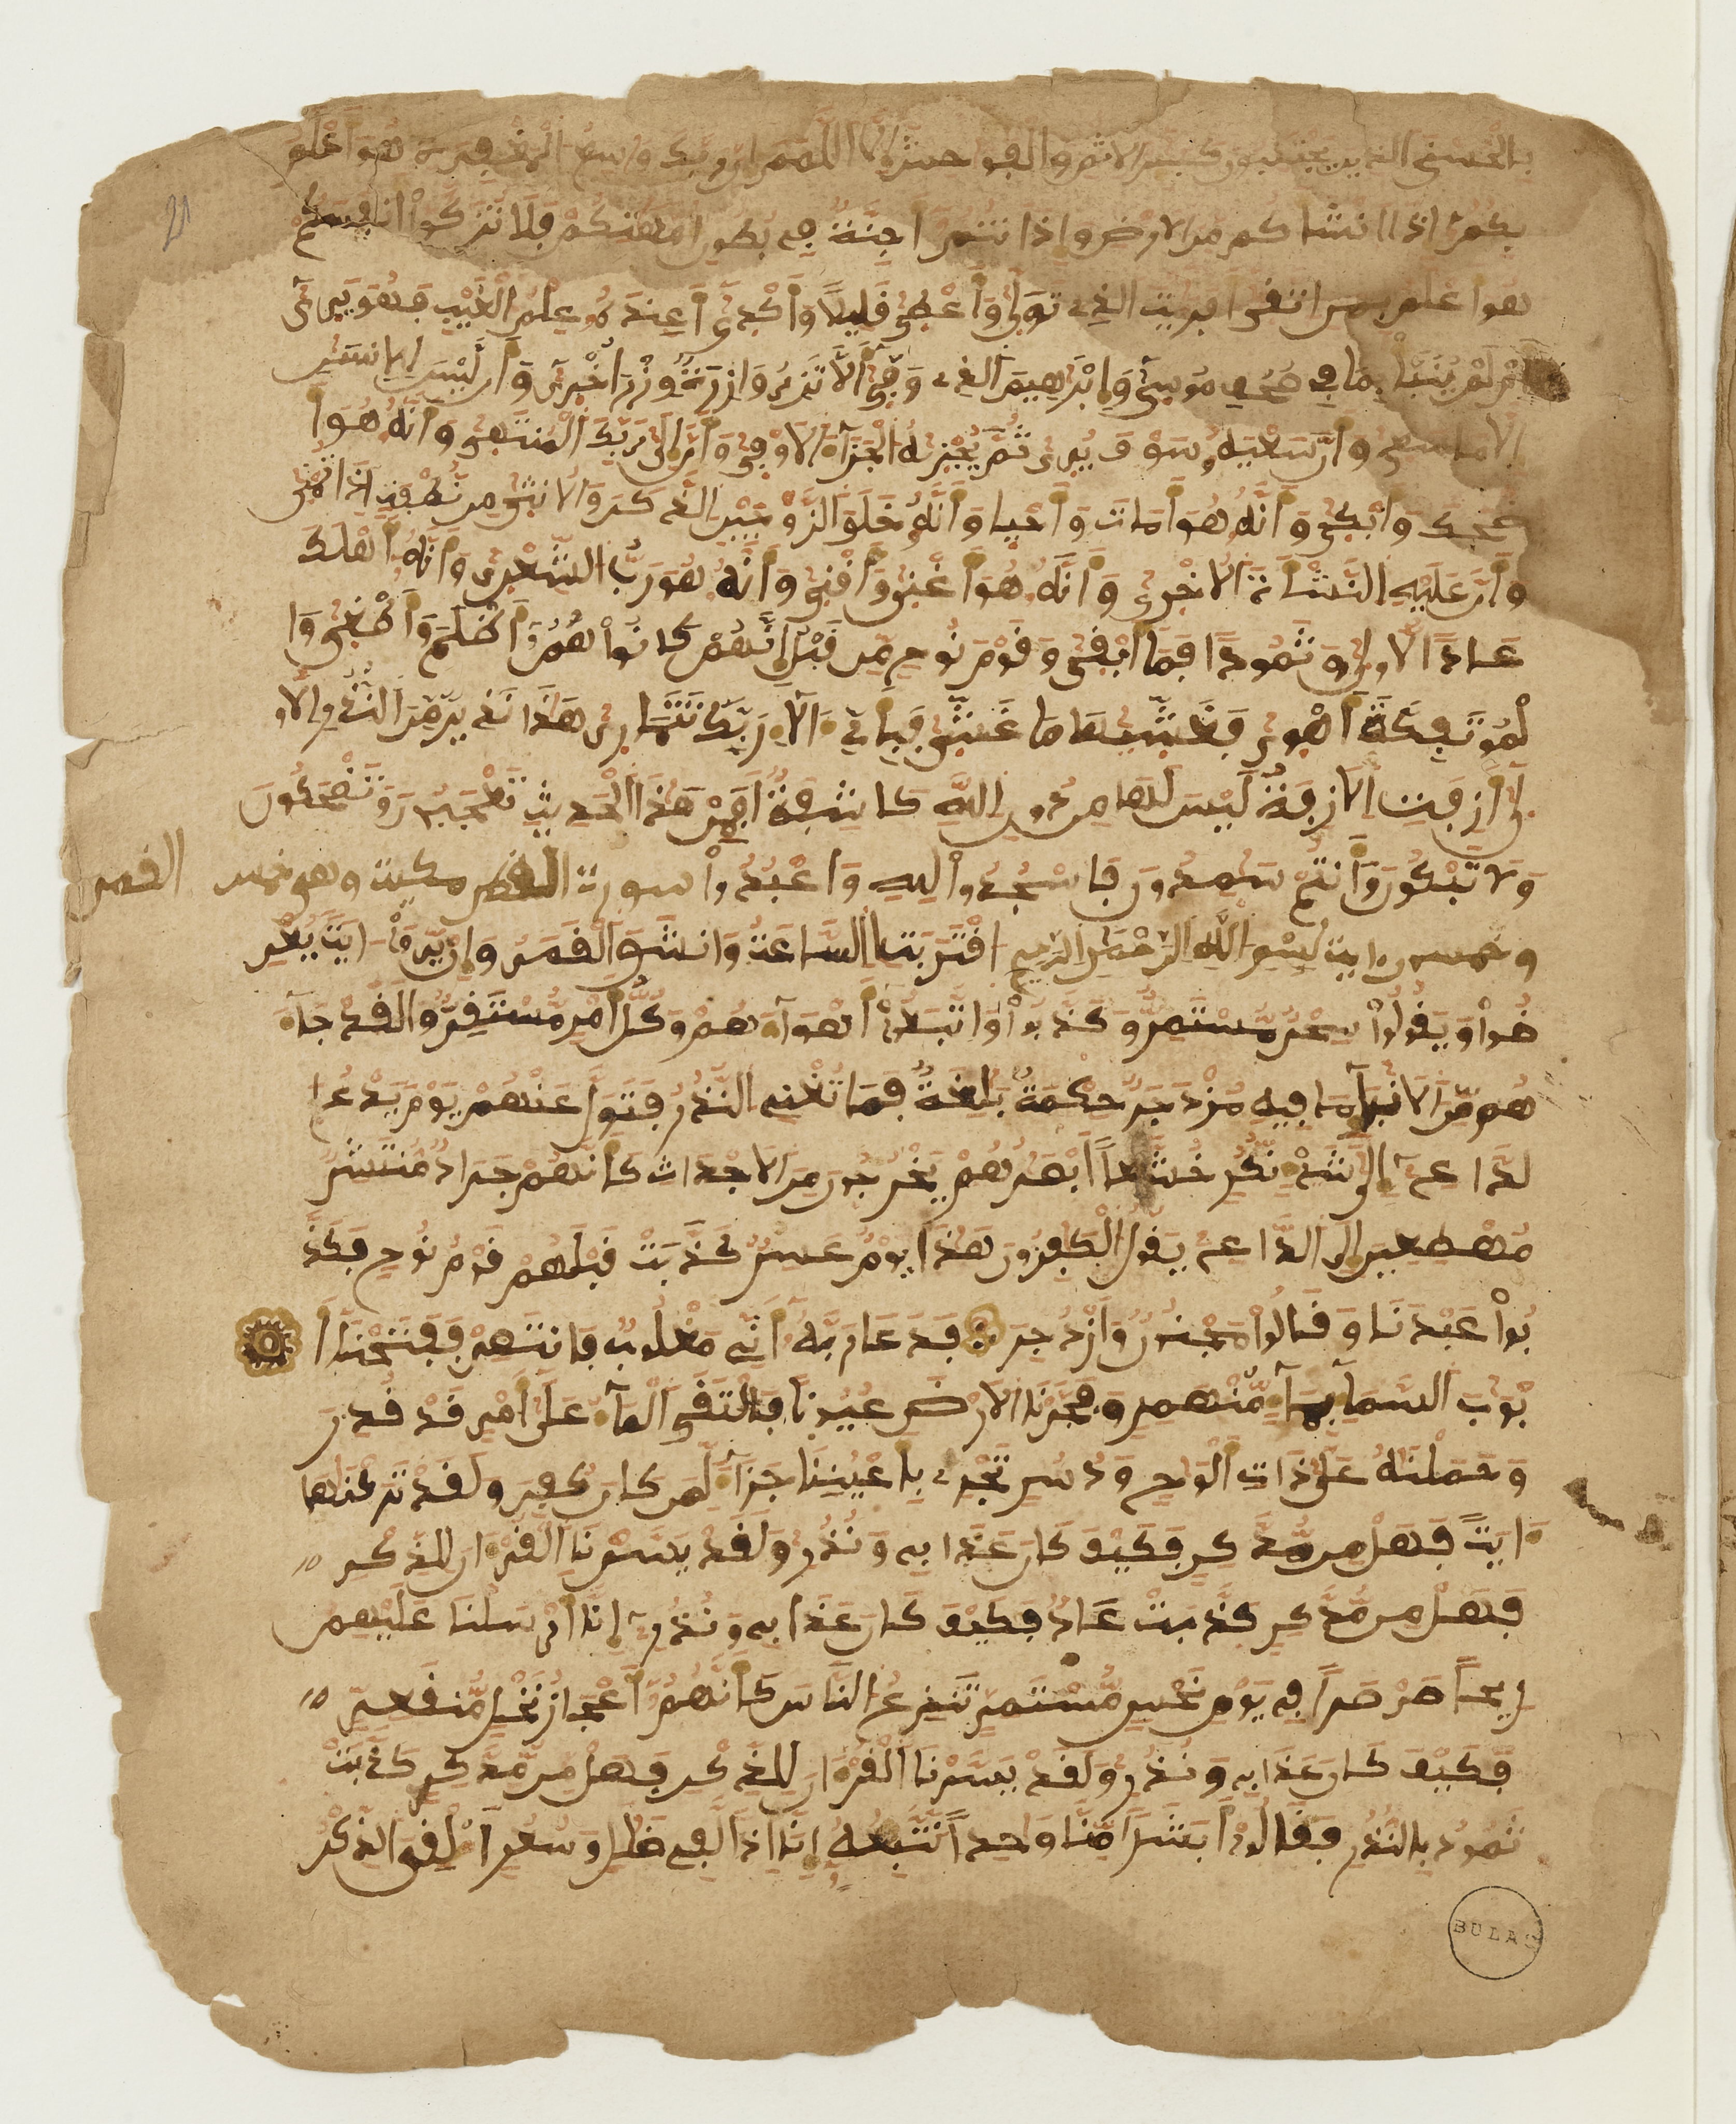 بالحسنى الذين يجتنبون كبئر الاثم والفوحش إلا اللمم إن ربك واسع المغفرة هو أعلم
بكم إذ أنشأكم من الارض وإذ أنتم أجنة في بطون أمهتكم فلا تزكوا أنفسكم
هو أعلم بمن اتقى أفرءيت الذي تولى وأعطى قليلا وأكدى أعنده علم الغيب فهو يرى
أم لم ينبأ بما في صحف موسى وإبرهيم الذي وفى ألا تزر وازرة وزر أخرى وأن ليس للانسن
إلا ما سعى وأن سعيه سوف يرى ثم يجزيه الجزاء الاوفى وأن إلى ربك المنتهى وأنه هو أ
ضحك وأبكى وأنه هو أمات وأحيا وأنه خلق الزوجين الذكر والانثى من نطفة إذا تمنى
وأن عليه النشأة الاخرى وأنه هو أغنى وأقنى وأنه هو رب الشعرى وأنه أهلك
عادا الاولى وثمودا فما أبقى وقوم نوح من قبل إنهم كانوا هم أظلم وأطغى وا
لموتفكة أهوى فغشيها ما غشى فبأي ءالاء ربك تتمارى هذا نذير من النذر الاو
لى أزفت الازفة ليس لها من دون الله كاشفة أفمن هذا الحديث تعجبون وتضحكون
ولا تبكون وأنتم سمدون فاسجدوا لله واعبدوا سورة القمر مكية وهي خمس
القمر
وخمسون ءاية بسم الله الرحمن الرحيم اقتربت الساعة وانشق القمر وإن يروا ءاية يعر
ضوا ويقولوا سحر مستمر وكذبوا واتبعوا أهواءهم وكل أمر مستقر ولقد جاء
هم من الانباء ما فيه مزدجر حكمة بلغة فما تغن النذر فتول عنهم يوم يدع ا
لداع إلى شيء نكر خشعا أبصرهم يخرجون من الاجداث كأنهم جراد منتشر
مهطعين إلى الداع يقول الكفرون هذا يوم عسر كذبت قبلهم قوم نوح فكذ
بوا عبدنا وقالوا مجنون وازدجر فدعا ربه أني مغلوب فانتصر ففتحنا أ
بوب السماء بماء منهمر وفجرنا الارض عيونا فالتقى الماء على أمر قد قدر
وحملنه على ذات ألوح ودسر تجري بأعيننا جزاء لمن كان كفر ولقد تركنها
ءاية فهل من مدكر فكيف كان عذابي ونذر ولقد يسرنا القرءان للذكر
فهل من مدكر كذبت عاد فكيف كان عذابي ونذر إنا أرسلنا عليهم
ريحا صرصرا في يوم نحس مستمر تنزع الناس كأنهم أعجاز نخل منقعر
فكيف كان عذابي ونذر ولقد يسرنا القرءان للذكر فهل من مدكر كذبت
ثمود بالنذر فقالوا أبشرا منا وحدا نتبعه إنا إذا لفي ضلل وسعر أءلقي الذكر
BULAC